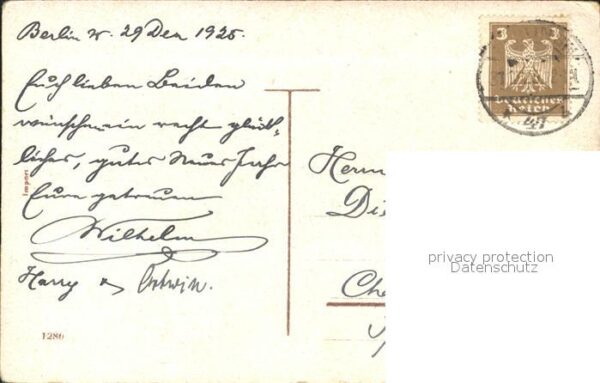 Berlin W. 29 Dez 1925.
Euch lieben Beiden
wünschen ein recht glück-
liches, gutes Neues Jahr
Eure getreuen
Wilhelm
Harry &
Herrn
Di
Che
3 3
Deutsches
Reich
47
Import
1286
privacy protection
Datenschutz